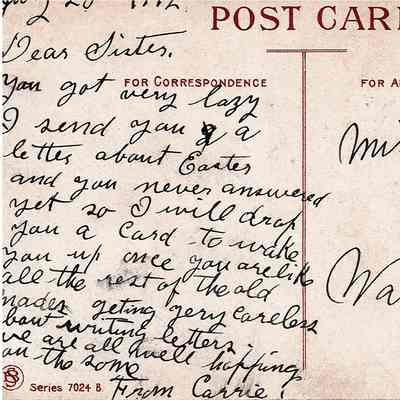 POST CAR
Dear Sister.
FOR CORRESPONDENCE
FOR A
You got very lazy
I send you a
letter about Easter
and you never answered
yet so I will drop
you a Card to wake
you up once you are lik
all the rest of the old
mades geting very careless
bout writing letters.
we are all well hopping
you the same
From Carrie.
Series 7024 B
Mi
Wa